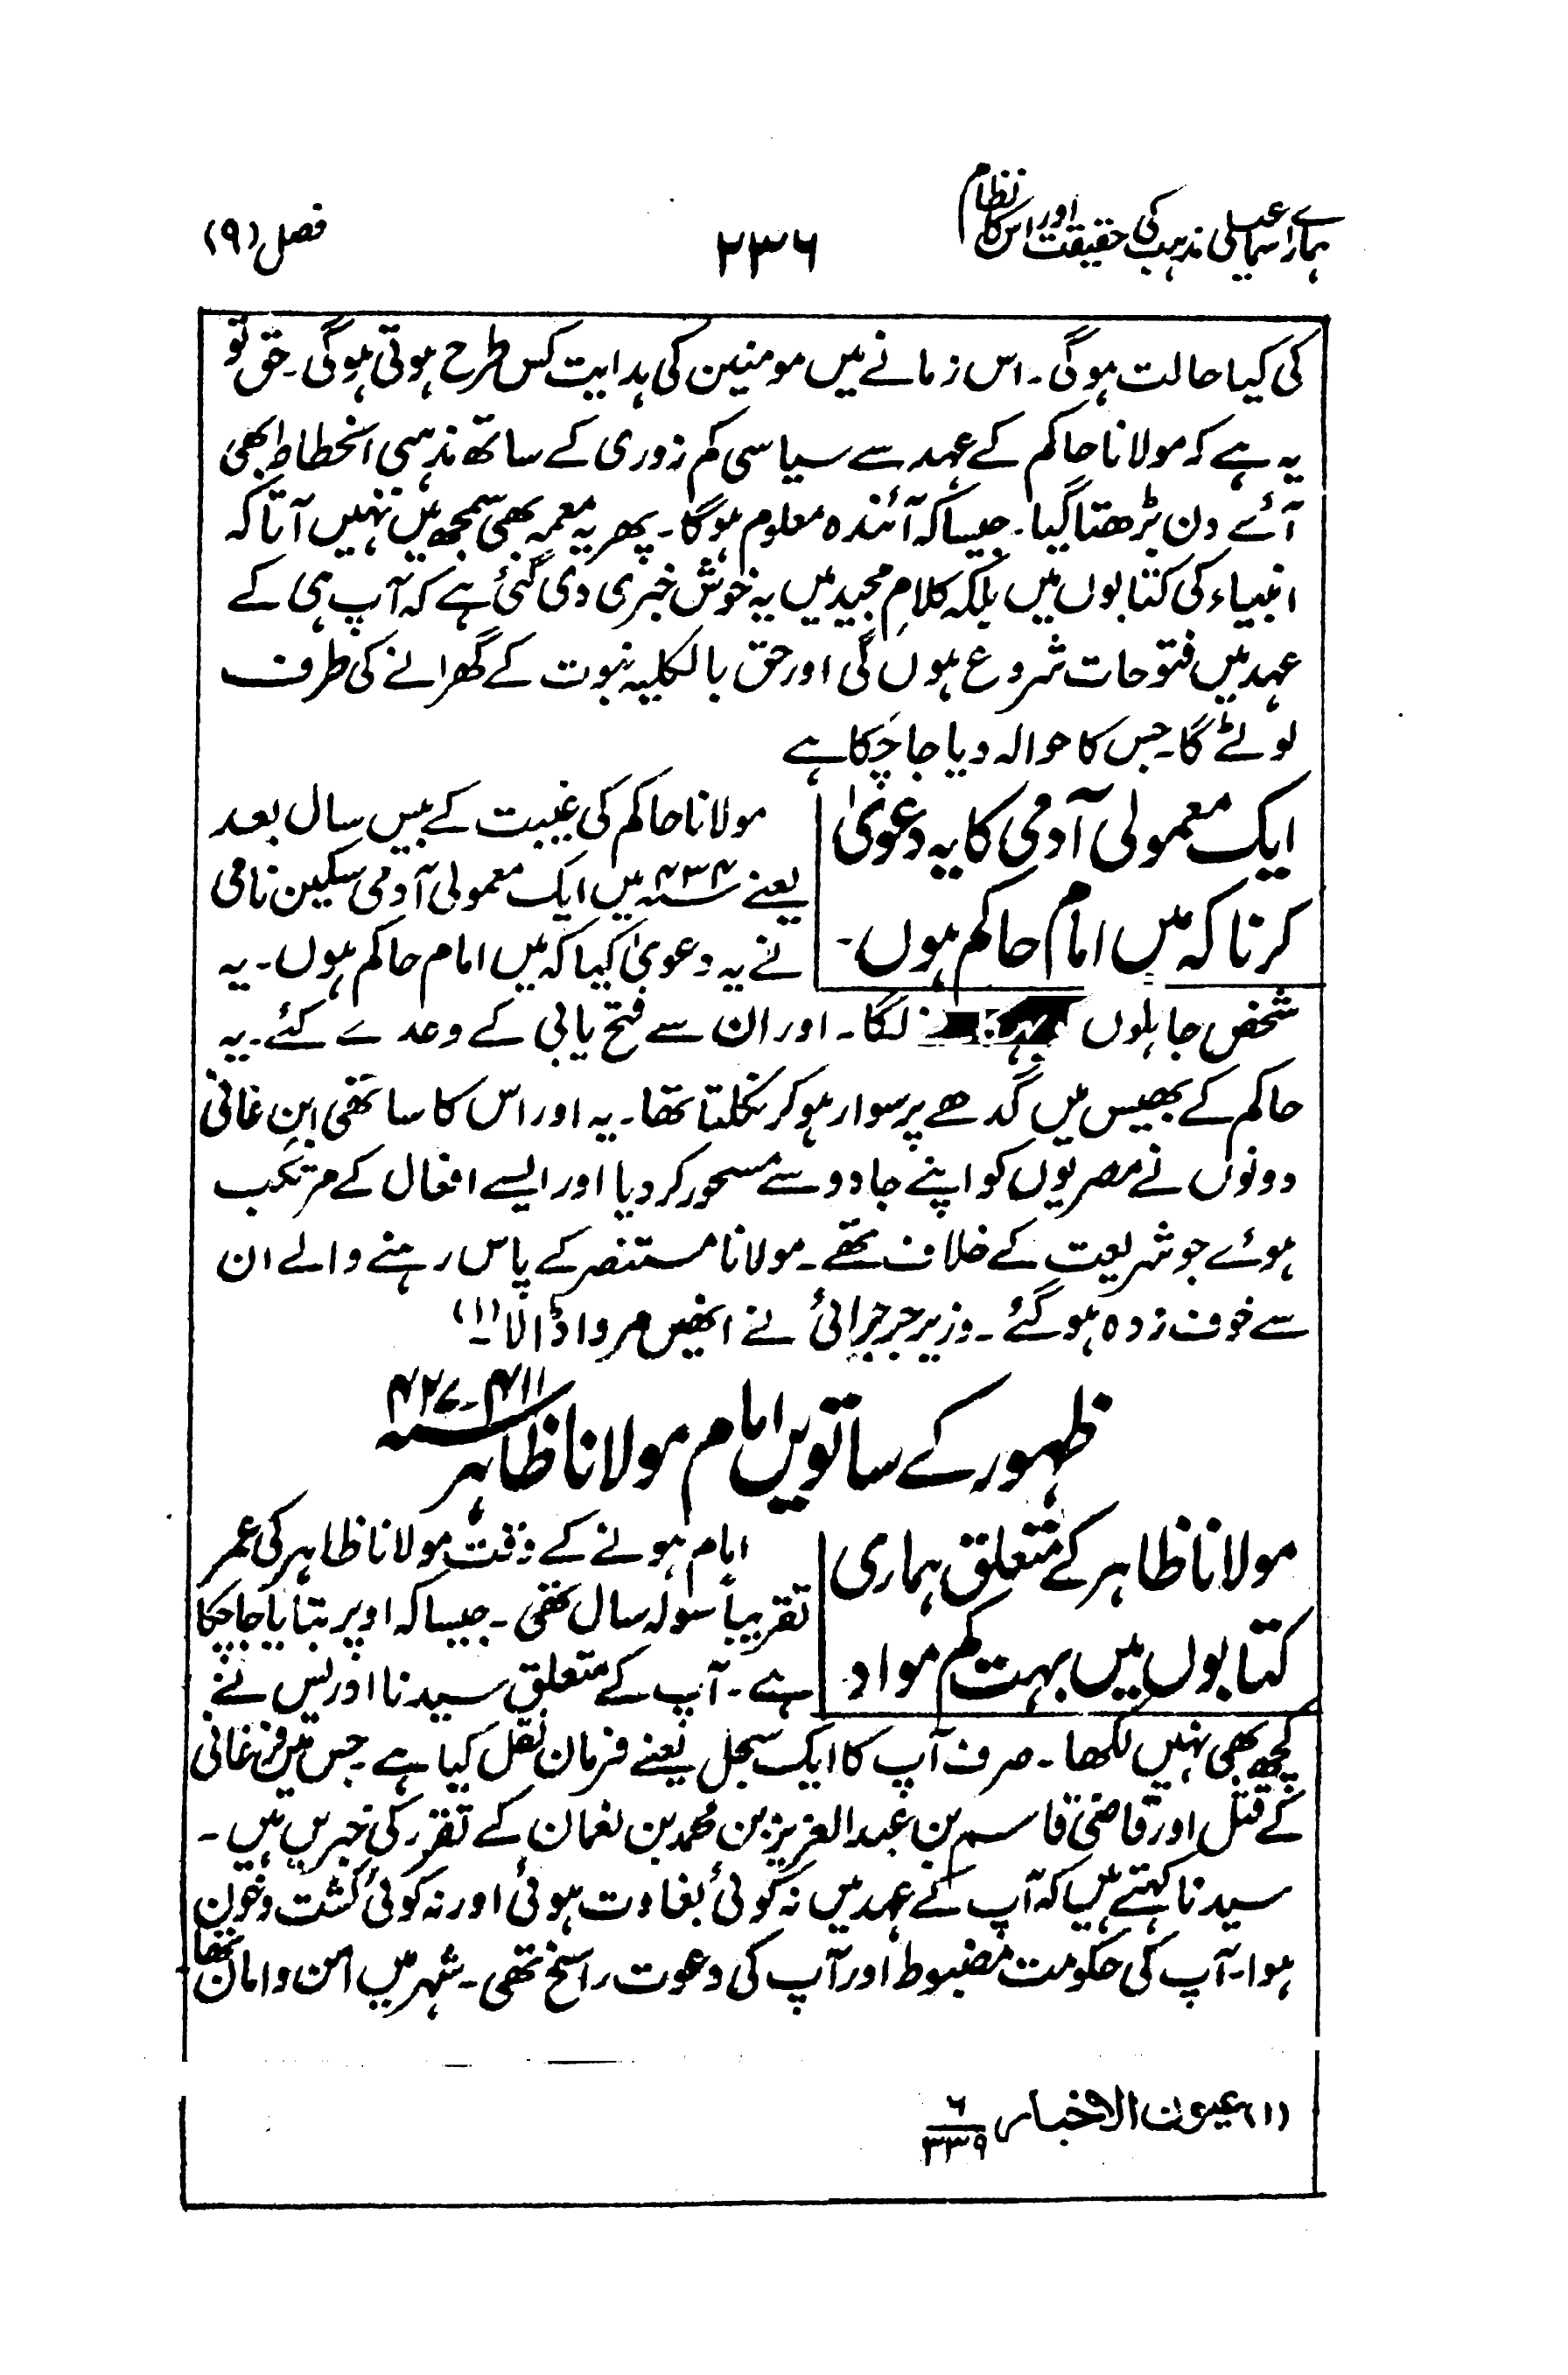 ہمارے اسماعیلی مذہب کی حقیقت اور اس کا نظام
۲۳۶
فصل (۹)
کی کیا حالت ہوگی۔ اس زمانے میں مومنین کی ہدایت کس طرح ہوتی ہوگی۔ حق تو
یہ ہے کہ مولانا حاکم کے عہد سے سیاسی کم زوری کے ساتھ مذہبی انحطاط بھی
آئے دن بڑھتا گیا۔ جیسا کہ آئندہ معلوم ہوگا۔ پھر یہ معمہ بھی سمجھ میں نہیں آتا کہ
انبیاء کی کتابوں میں بلکہ کلامِ مجید میں یہ خوش خبری دی گئی ہے کہ آپ ہی کے
عہد میں فتوحات شروع ہوں گی اور حق بالکلیہ نبوت کے گھرانے کی طرف
لوٹے گا۔ جس کا حوالہ دیا جا چکا ہے
ایک معمولی آدمی کا یہ دعویٰ
کرنا کہ میں امام حاکم ہوں۔
مولانا حاکم کی غیبت کے بیس سال بعد
یعنے ۴۳۴ سنہ میں ایک معمولی آدمی سکین نامی
نے یہ دعویٰ کیا کہ میں امام حاکم ہوں۔ یہ
شخص جاہلوں لگا۔ اور ان سے فتح یابی کے وعدے کئے۔ یہ
حاکم کے بھیس میں گدھے پر سوار ہو کر نکلتا تھا۔ یہ اور اس کا ساتھی ابنِ غانی
دونوں نے مصریوں کو اپنے جادو سے مسحور کر دیا اور ایسے افعال کے مرتکب
ہوئے جو شریعت کے خلاف تھے۔ مولانا مستنصر کے پاس رہنے والے ان
سے خوف زدہ ہوگئے۔ وزیر جرجرائی نے انھیں مروا ڈالا۔ (۱)
ظہور کے ساتویں امام مولانا ظاہر سنہ ۴۱۱-۴۲۷
مولانا ظاہر کے متعلق ہماری
کتابوں میں بہت کم مواد۔
امام ہونے کے وقت مولانا ظاہر کی عمر
تقریباً سولہ سال تھی۔ جیسا کہ اوپر بتایا جا چکا
ہے۔ آپ کے متعلق سیدنا ادریس نے
کچھ بھی نہیں لکھا۔ صرف آپ کا ایک سجل یعنے فرمان نقل کیا ہے جس میں فرغانی
کے قتل اور قاضی قاسم بن عبدالعزیز بن محمد بن نعمان کے تقرر کی خبریں ہیں۔
سیدنا کہتے ہیں کہ آپ کے عہد میں نہ کوئی بغاوت ہوئی اور نہ کوئی کشت و خون
ہوا۔ آپ کی حکومت مضبوط اور آپ کی دعوت راسخ تھی۔ شہر میں امن و امان تھا
(۱) عیون الاخبار ۶/۳۳۹